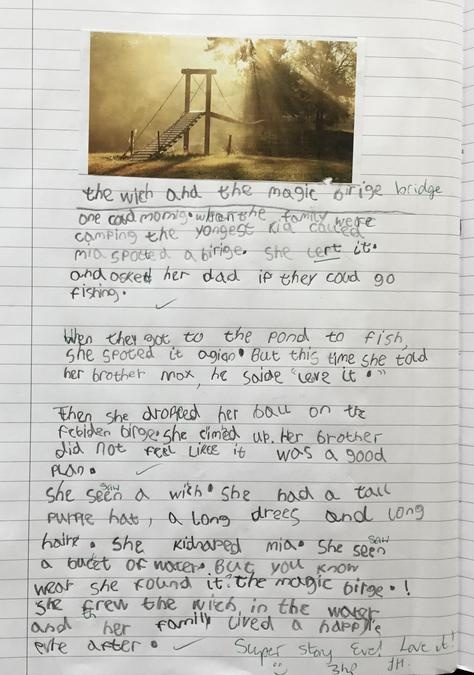 the wich and the magic birige bridge
one coud mornig. when the family were
camping the yongest kid called
mia spotted a birige. she left it.
and asked her dad if they coud go
fishing.
Wen they got to the pond to fish,
she spoted it agian. But this time she told
her brother max, he saide "leve it."
Then she dropped her ball on the
febiden birge. she climed up. Her brother
did not feel like it was a good
plan.
She seen saw a wich. She had a tall
purple hat, a long drees and long
haire. She kidnaped mia. She seen saw
a bucet of water. But you know
wear she found it? the magic birge. !
She frew th the wich in the water
and her family lived a happyle
evre after.
Super story Eve! Love it!
JH.